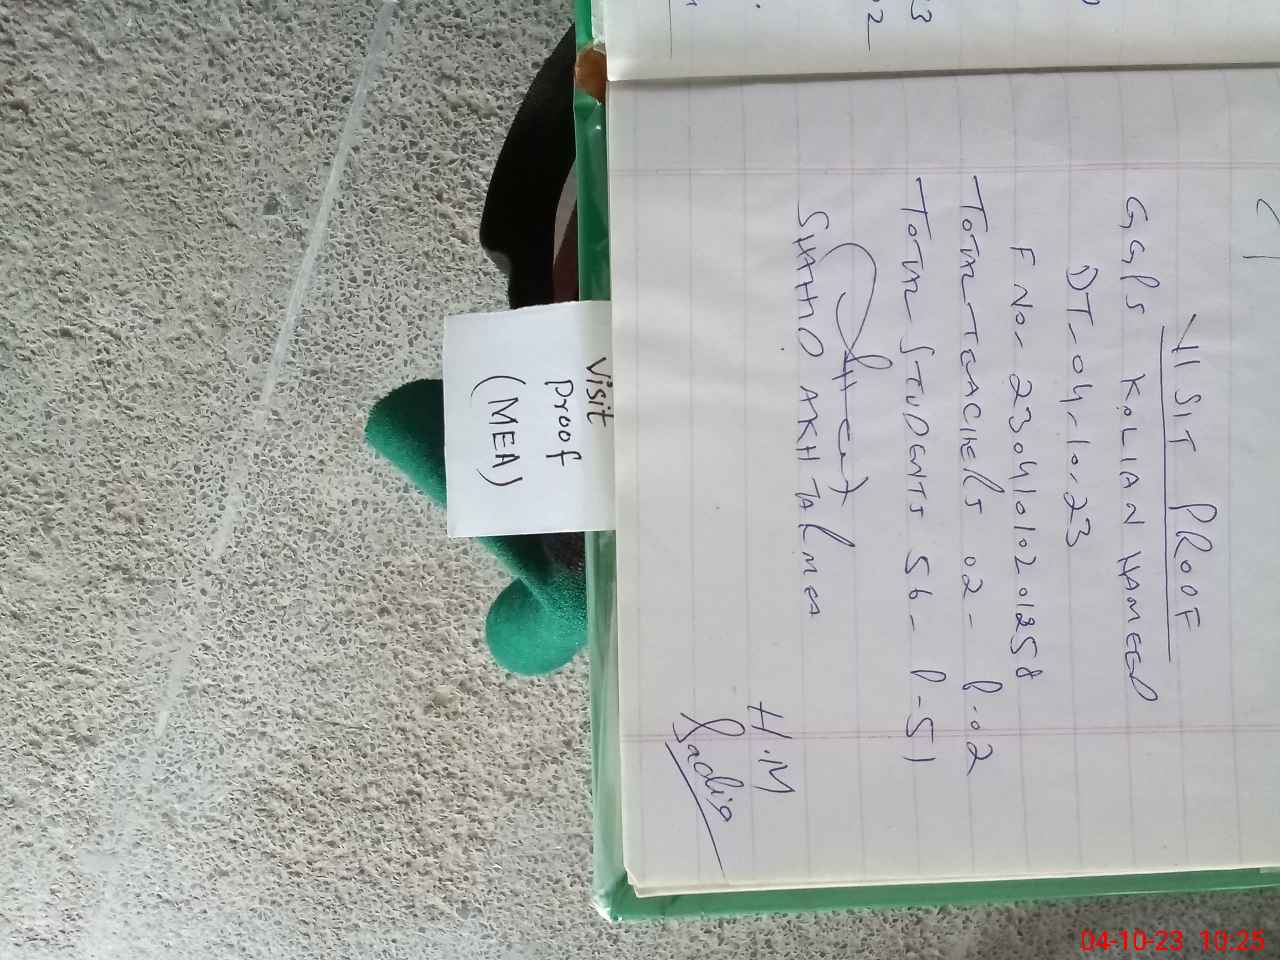 VISIT PROOF
GGPS KOLIAN HAMEED
DT-04-10-23
F No- 23041010201258
TOTAL TEACHERS 02- P-02
TOTAL STUDENTS 56- P-51
SHAHID AKHTAR MEA
H.M
Sadia
Visit
Proof
(MEA)
04-10-23 10:25